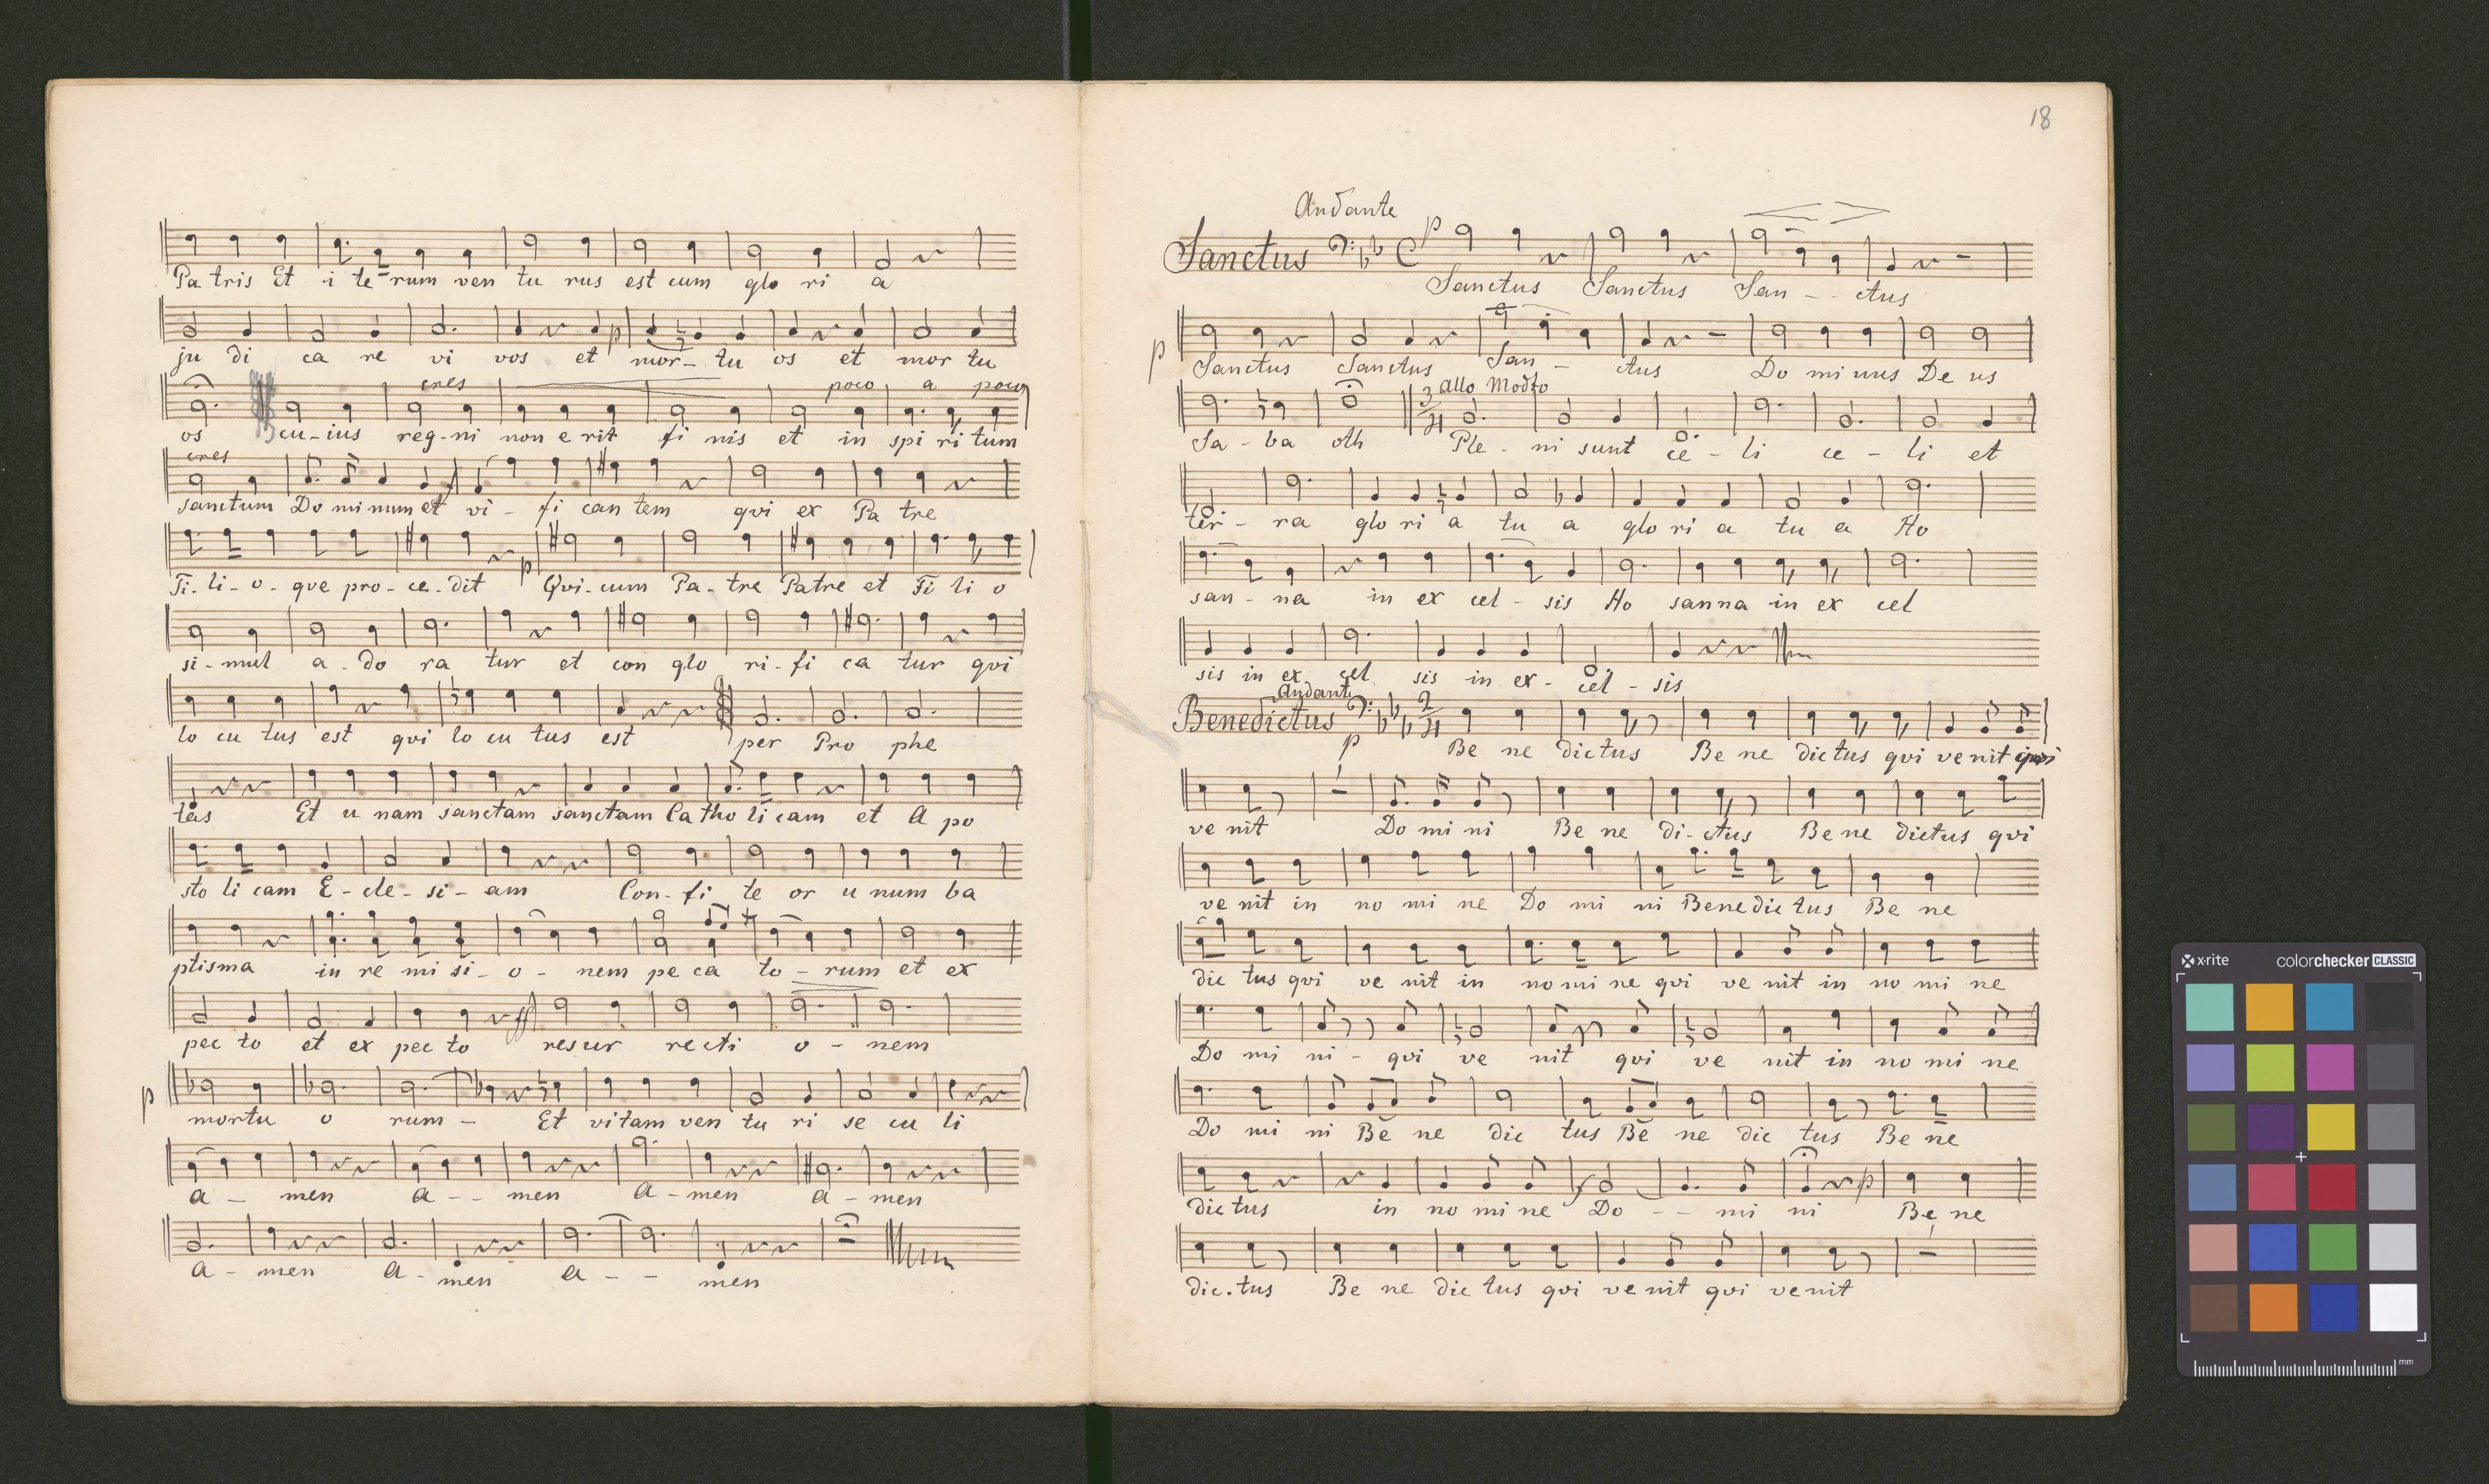 Pa tris Et i te rum ven tu rus est cum glo ri a
ju di ca re vi vos et mor - tu os et mor tu
p
cres poco a poco
os cu - ius reg - ni non e rit fi nis et in spi ri tum
cres
sanctum Do mi num et vi - fi can tem qui ex Pa tre
f
Fi - li - o - que pro - ce - dit Qui - cum Pa - tre Patre et Fi li o
p
si - mul a - do ra tur et con glo ri - fi ca tur qui
lo cu tus est qui lo cu tus est per Pro phe
tas Et u nam sanctam sanctam Ca tho li cam et A po
sto li cam E - cle - si - am Con - fi te or u num ba
ptisma in re mi si - o - nem pe ca to - rum et ex
ff
pec to et ex pec to resur recti o - nem
p
mortu o rum - Et vitam ven tu ri se cu li
a - men a - - men a - men a - men
a - men a - men a - - men
18
Andante
Sanctus C p
Sanctus Sanctus San - - ctus
p
Sanctus Sanctus San - ctus Do mi nus De us
3/4 Allo Modto
Sa - ba oth Ple - ni sunt ce - li ce - li et
ter - ra glo ri a tu a glo ri a tu a Ho
san - na in ex cel - sis Ho sanna in ex cel
sis in ex cel sis in ex - cel - sis
Andante
Benedictus 2/4
p Be ne dictus Be ne dictus qui ve nit qui
ve nit Do mi ni Be ne di - ctus Be ne dictus qui
ve nit in no mi ne Do mi ni Bene dic tus Be ne
dic tus qui ve nit in no mi ne qui ve nit in no mi ne
Do mi ni - qui ve nit qui ve nit in no mi ne
Do mi ni Be ne dic tus Be ne dic tus Be ne
f p
dic tus in no mi ne Do - - mi ni Be ne
dic - tus Be ne dic tus qui ve nit qui ve nit
x-rite colorchecker CLASSIC
mm